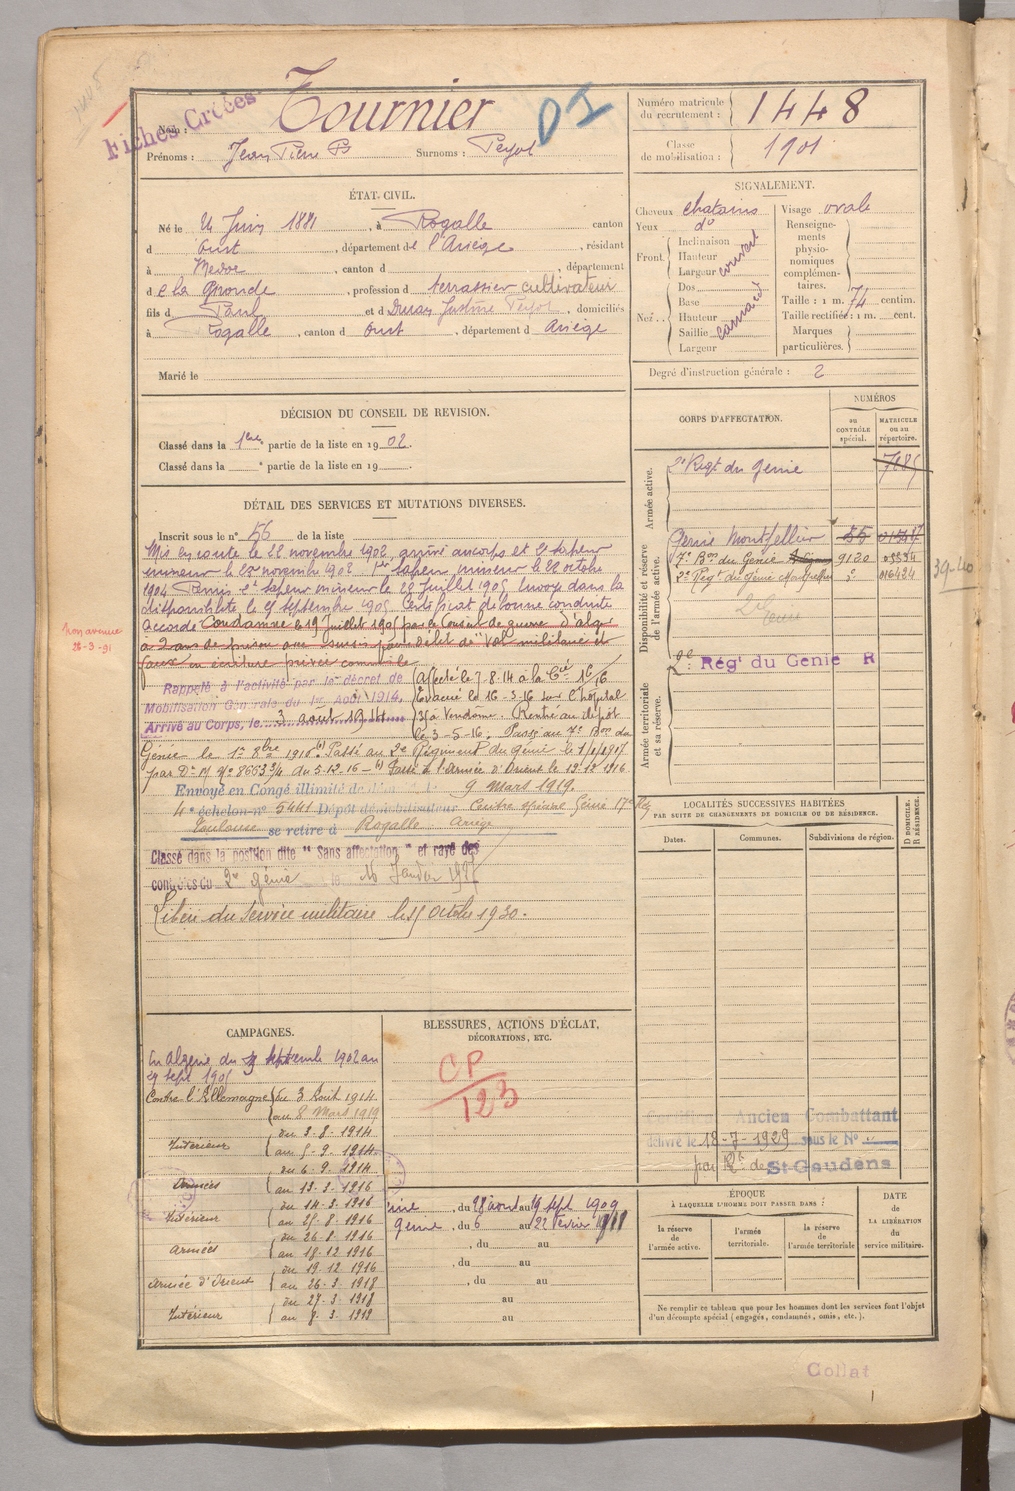 Fiches Créées
Nom : Tournier
DI
Prénoms : Jean Pierre Bte Surnoms : Peyot
Numéro matricule du recrutement : 1448
Classe de mobilisation : 1901
ÉTAT CIVIL.
Né le 4 Juin 1881, à Rogalle canton
d Oust, département de l'Ariège, résidant
à Medoc, canton d , département
d e la Gironde, profession d terrassier cultivateur
fils d Paul et d Duran Justine Peyot, domiciliés
à Rogalle, canton d Oust, département d Ariège
Marié le
SIGNALEMENT.
Cheveux chatains Visage ovale
Yeux do
Front. Inclinaison Hauteur Largeur couvert
Nez. Dos Base Hauteur Saillie Largeur
Renseignements physionomiques complémentaires.
Taille : 1 m. 74 centim.
Taille rectifiée : 1 m. cent.
Marques particulières.
Degré d'instruction générale : 2
DÉCISION DU CONSEIL DE REVISION.
Classé dans la 1ere partie de la liste en 1902.
Classé dans la e partie de la liste en 19 .
DÉTAIL DES SERVICES ET MUTATIONS DIVERSES.
Inscrit sous le n° 56 de la liste
Mis en route le 22 novembre 1902, arrivé au corps et 2e sapeur
mineur le 23 novembre 1902. 1er sapeur mineur le 22 octobre
1904 Remis 2e sapeur mineur le 28 Juillet 1905 Envoyé dans la
disponibilité le 27 septembre 1905. Certificat de bonne conduite
accordé Condamné le 19 Juillet 1905 par le Conseil de guerre d'Alger
à 2 ans de prison avec sursis pour délit de "vol militaire et
faux en écriture privée commerciale
Non avenue
28-3-91
Rappelé à l'activité par le décret de
Mobilisation Générale du 1er Août 1914.
Arrivé au Corps, le 3 août 1914
Affecté le 7-8-14 à la Cie 16/6
Evacué le 16-3-16 sur l'hôpital
à Vendôme. Rentré au dépôt
le 3-5-16. Passé au 7e Bon du
Génie le 1er 8bre 1916 Passé au 2e Régiment du génie le 1/1/1917
par Dn M No 8663 3/4 du 5.12.16 Passé à l'Armée d'Orient le 19 12 1916
Envoyé en Congé illimité de 9 Mars 1919.
4e échelon no 5441 Dépôt démobilisateur Centre spécial Génie 17e Rég
Toulouse se retire à Rogalle Ariège
Classé dans la position dite "Sans affectation" et rayé des
contrôles du 2e génie le 16 Janvier 1927
Libéré du service militaire le 15 octobre 1930.
CORPS D'AFFECTATION.
NUMÉROS
au CONTRÔLE spécial.
MATRICULE ou au répertoire.
Armée active.
2e Régt du Génie 7885
Disponibilité et réserve de l'armée active.
Génie Montpellier 55
7e Bon du Génie Avignon 9120 05534
2e Régt du génie Montpellier 016424
39-40
2e Génie
Armée territoriale et sa réserve.
2e : Régt du Génie R
LOCALITÉS SUCCESSIVES HABITÉES
PAR SUITE DE CHANGEMENTS DE DOMICILE OU DE RÉSIDENCE.
Dates. Communes. Subdivisions de région. D DOMICILE. R RÉSIDENCE.
CAMPAGNES.
En Algérie du septembre 1902 au
27 sept 1905
Contre l'Allemagne du 3 Août 1914
au 8 Mars 1919
Intérieur du 3-8-1914
au 5-9-1914
Armées du 6-9-1914
au 13-3-1916
Intérieur du 14-3-1916
au 25-8-1916
Armées du 26-8-1916
au 18-12-1916
Armée d'Orient du 19-12-1916
au 26-3-1918
Intérieur du 27-3-1918
au 8-3-1919
BLESSURES, ACTIONS D'ÉCLAT,
DÉCORATIONS, ETC.
CP
123
Certificat Ancien Combattant
délivré le 18-7-1929 sous le N°
par Rt de St-Gaudens
, du 28 août au 19 sept 1909
génie, du 6 au 22 fevrier 1911
, du au
, du au
, du au
au
au
ÉPOQUE
À LAQUELLE L'HOMME DOIT PASSER DANS :
la réserve de l'armée active.
l'armée territoriale.
la réserve de l'armée territoriale
DATE DE LA LIBÉRATION du service militaire.
Ne remplir ce tableau que pour les hommes dont les services font l'objet
d'un décompte spécial (engagés, condamnés, omis, etc.).
Collat